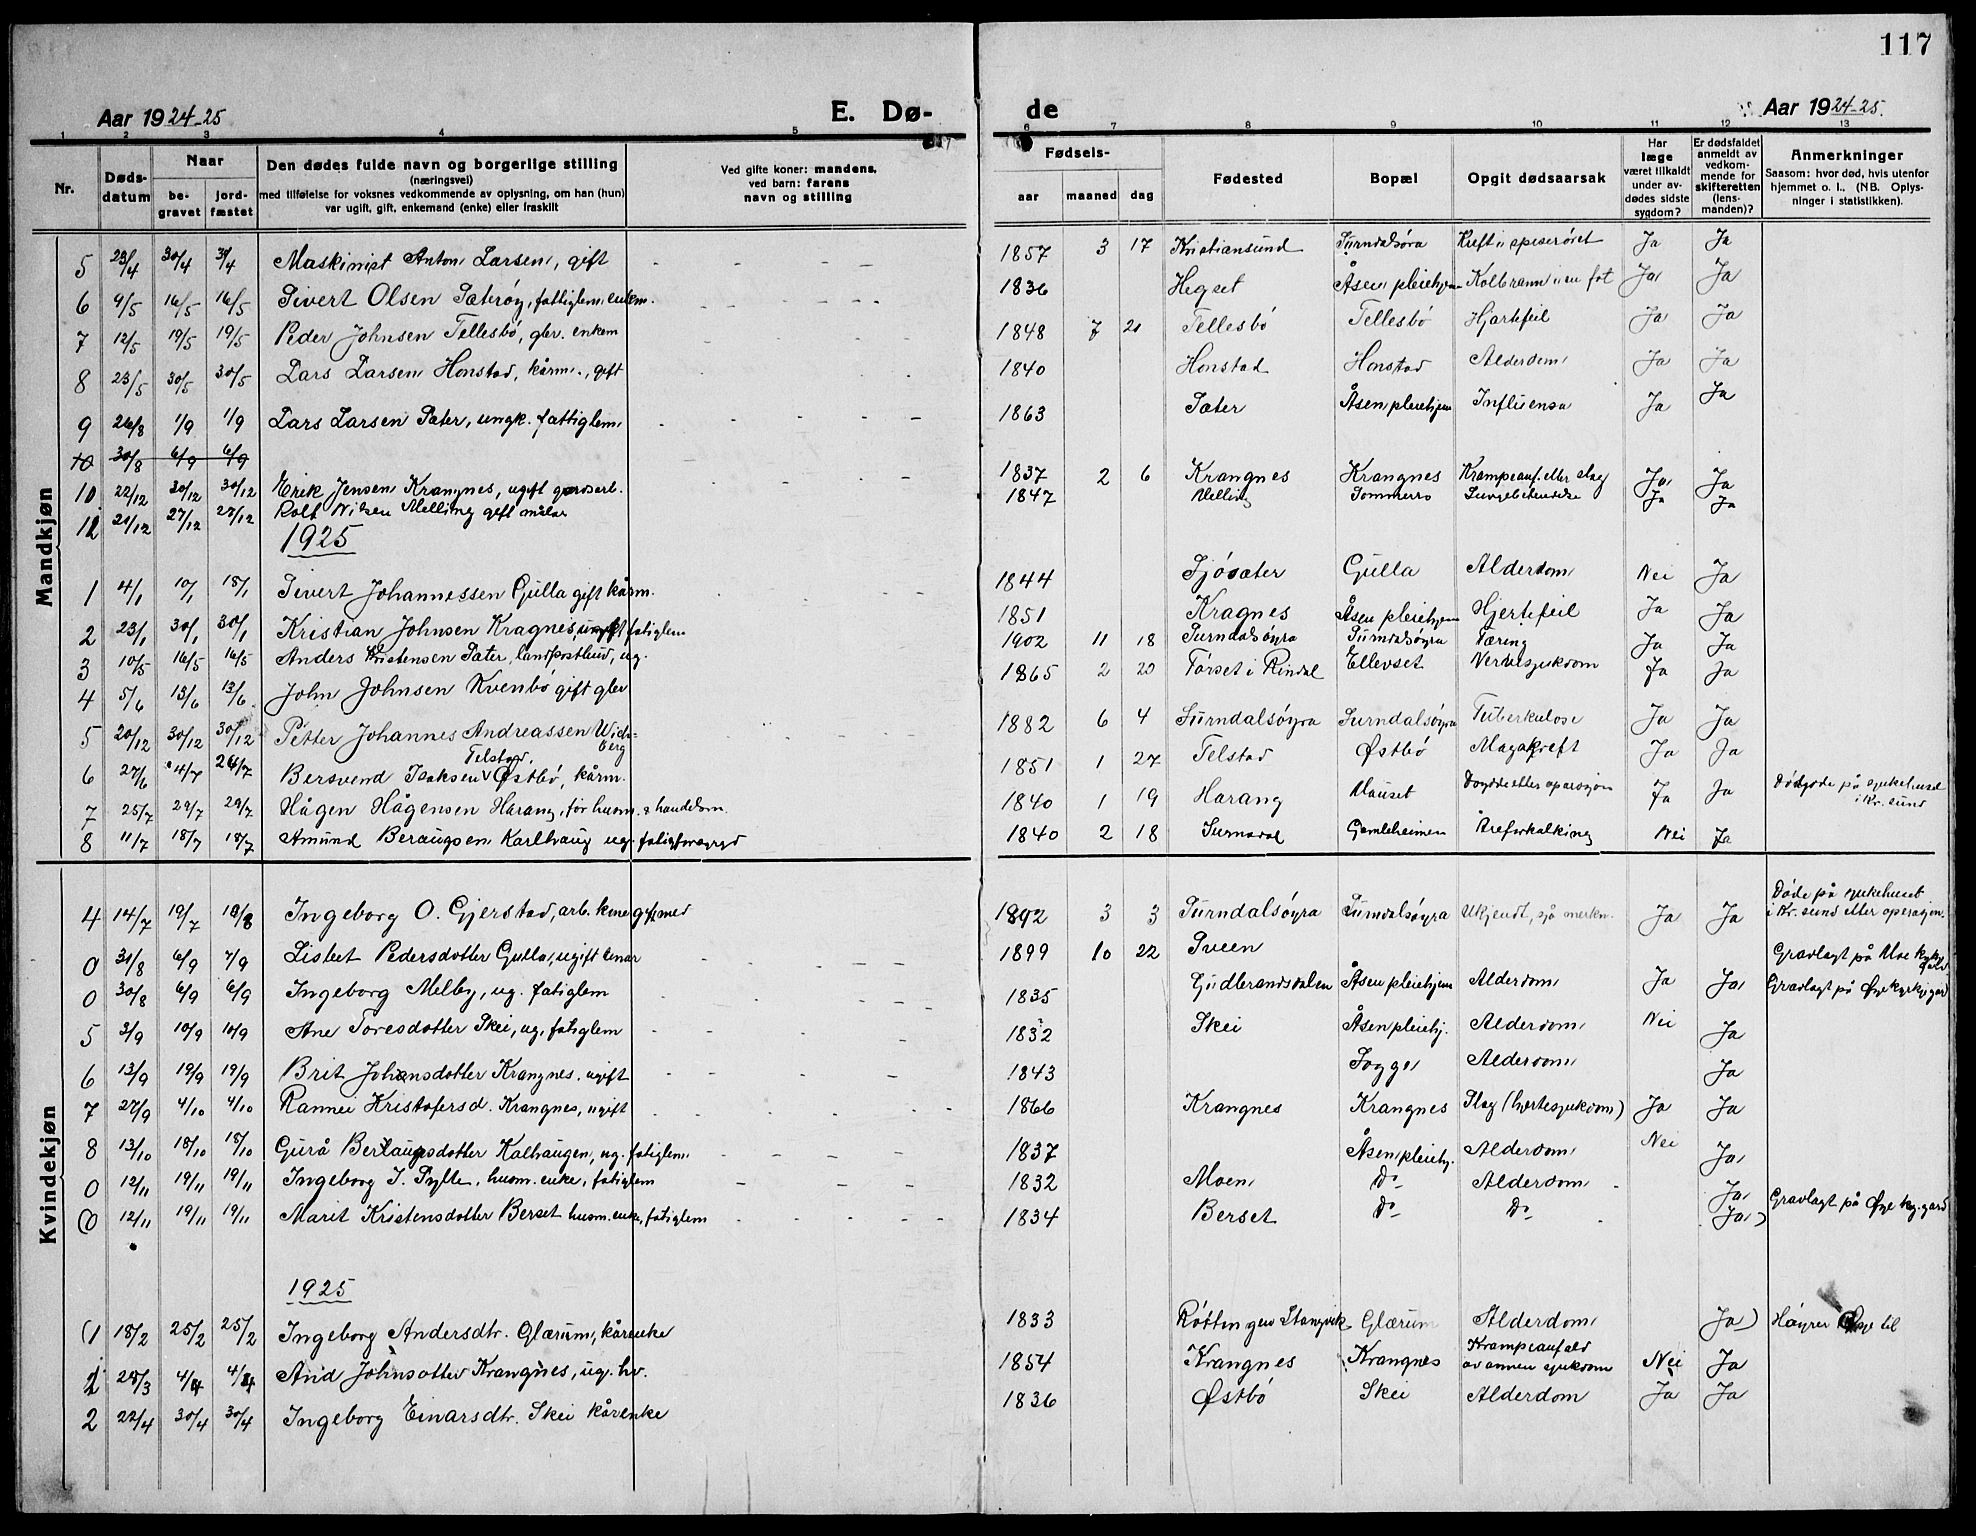 117
Aar 1924-25 E. Dø- de Aar 1924-25.
1 2 3 4 5 6 7 8 9 10 11 12 13
Nr. Døds-datum Naar be-gravet jord-fæstet Den dødes fulde navn og borgerlige stilling (næringsvei) med tilføielse for voksnes vedkommende av oplysning, om han (hun) var ugift, gift, enkemand (enke) eller fraskilt Ved gifte koner: mandens, ved barn: farens navn og stilling Fødsels- aar maaned dag Fødested Bopæl Opgit dødsaarsak Har læge været tilkaldt under av-dødes sidste sygdom? Er dødsfaldet anmeldt av vedkom-mende for skifteretten (lens-manden)? Anmerkninger Saasom: hvor død, hvis utenfor hjemmet o. l., (NB. Oplys-ninger i statistikken).
Mandkjøn
5 23/4 30/4 30/4 Maskinist Anton Larsen, gift 1857 3 17 Kristiansund Surndalsøra Kreft i spiserøret Ja Ja
6 9/5 16/5 16/5 Sivert Olsen Sæterøy, fattiglem, enkem. 1836 Hegset Åsen pleiehjem Kolbrann i en fot Ja Ja
7 12/5 19/5 19/5 Peder Johnsen Tellesbø, gbr. enkem 1848 7 21 Tellesbø Tellesbø Hjartefeil Ja Ja
8 23/5 30/5 30/5 Lars Larsen Honstad, kårm., gift 1840 Honstad Honstad Alderdom Ja Ja
9 26/8 1/9 1/9 Lars Larsen Sæter, ungk. fattiglem 1863 Sæter Åsen pleiehjem Influensa Ja Ja
10 30/8 6/9 6/9
10 22/12 30/12 30/12 Erik Jensen Krangnes, ugift gardsarb. 1837 2 6 Krangnes Krangnes Krampeanf. etter slag Ja Ja
11 20/12 27/12 27/12 Rolf Nilsen Melling gift målar 1847 Melling Sommerro Lungebetendelse Ja Ja
1925
1 4/1 10/1 18/1 Sivert Johannessen Gulla gift kårm. 1844 Sjøsæter Gulla Alderdom Nei Ja
2 23/1 30/1 30/1 Kristian Johnsen Kragnes ugift fatiglem 1851 Kragnes Åsen pleiehjem Hjertefeil Ja Ja
3 10/5 16/5 16/5 Anders Kristensen Sæter, landpostbud, ug. 1902 11 18 Surndalsøyra Surndalsøyra Tæring Ja Ja
4 5/6 13/6 13/6 John Johnsen Kvenbø gift gbr 1865 2 20 Tørset i Rindal Ellevset Nervesjukdom Ja Ja
5 20/12 30/12 30/12 Petter Johannes Andreassen Wids-berg 1882 6 4 Surndalsøyra Surndalsøyra Tuberkulose Ja Ja
6 27/6 4/7 24/7 Bersvend Isaksen Telstad, Østbø, kårm. 1851 1 27 Telstad Østbø Magakreft Ja Ja
7 25/7 29/7 29/7 Hågen Hågensen Harang, før husm. & handelsm. 1840 1 19 Harang Mauset Døydde etter operasjon Ja Ja Død på sjukehuset i Kr. sund
8 11/7 18/7 18/7 Amund Beraugsen Karlhaug ug. 1840 2 18 Surnadal Gamleheimen Åreforkalking Nei Ja
Kvindekjøn
4 14/7 19/7 19/8 Ingeborg O. Gjerstad, arb. kone gift med 1892 3 3 Surndalsøyra Surndalsøyra Ukjendt, sjå merkn. Ja Ja Døde på sjukehuset i Kr. sund etter operasjon.
0 31/8 6/9 7/9 Lisbet Pedersdotter Gulla, ugift 1899 10 22 Sveen Gravlagt på Moe
0 30/8 6/9 6/9 Ingeborg Melby, ug. fatiglem 1835 Gudbrandsdalen Åsen pleiehjem Alderdom Ja Ja Gravlagt på Øye kyrkjegard
5 3/9 10/9 10/9 Ane Toresdotter Skei, ug. fatiglem 1832 Skei Åsen pleiehj. Alderdom Nei Ja
6 13/9 19/9 19/9 Brit Johansdotter Krangnes, ugift 1843 Sogge Alderdom Ja
7 27/9 4/10 4/10 Rannei Kristofersd. Krangnes, ugift 1866 Krangnes Krangnes Slag (hjertesjukdom) Ja Ja
8 13/10 18/10 18/10 Gurå Beraugsdotter Kalhaugen, ug. fatiglem 1837 Åsen pleiehj. Alderdom Nei Ja
0 12/11 19/11 19/11 Ingeborg I. Sylte, husm. enke, fatiglem 1832 Moen Do Alderdom Ja
(0 12/11 19/11 19/11 Marit Kristensdotter Berset husm. enke, fatiglem 1834 Berset Do Do Ja) Gravlagt på Øye kyr. gard
1925
(1 18/2 25/2 25/2 Ingeborg Andersdtr. Glærum, kårenke 1833 Røttingen Stangvik Glærum Alderdom Ja) Høyrer Øye til
1 28/3 4/4 4/4 Arid Johnsdotter Krangnes, ug. hv. 1854 Krangnes Krangnes Krampeanfald av annen sjukdom Nei Ja
2 22/4 30/4 30/4 Ingeborg Einarsdtr. Skei kårenke 1836 Østbø Skei Alderdom Ja Ja